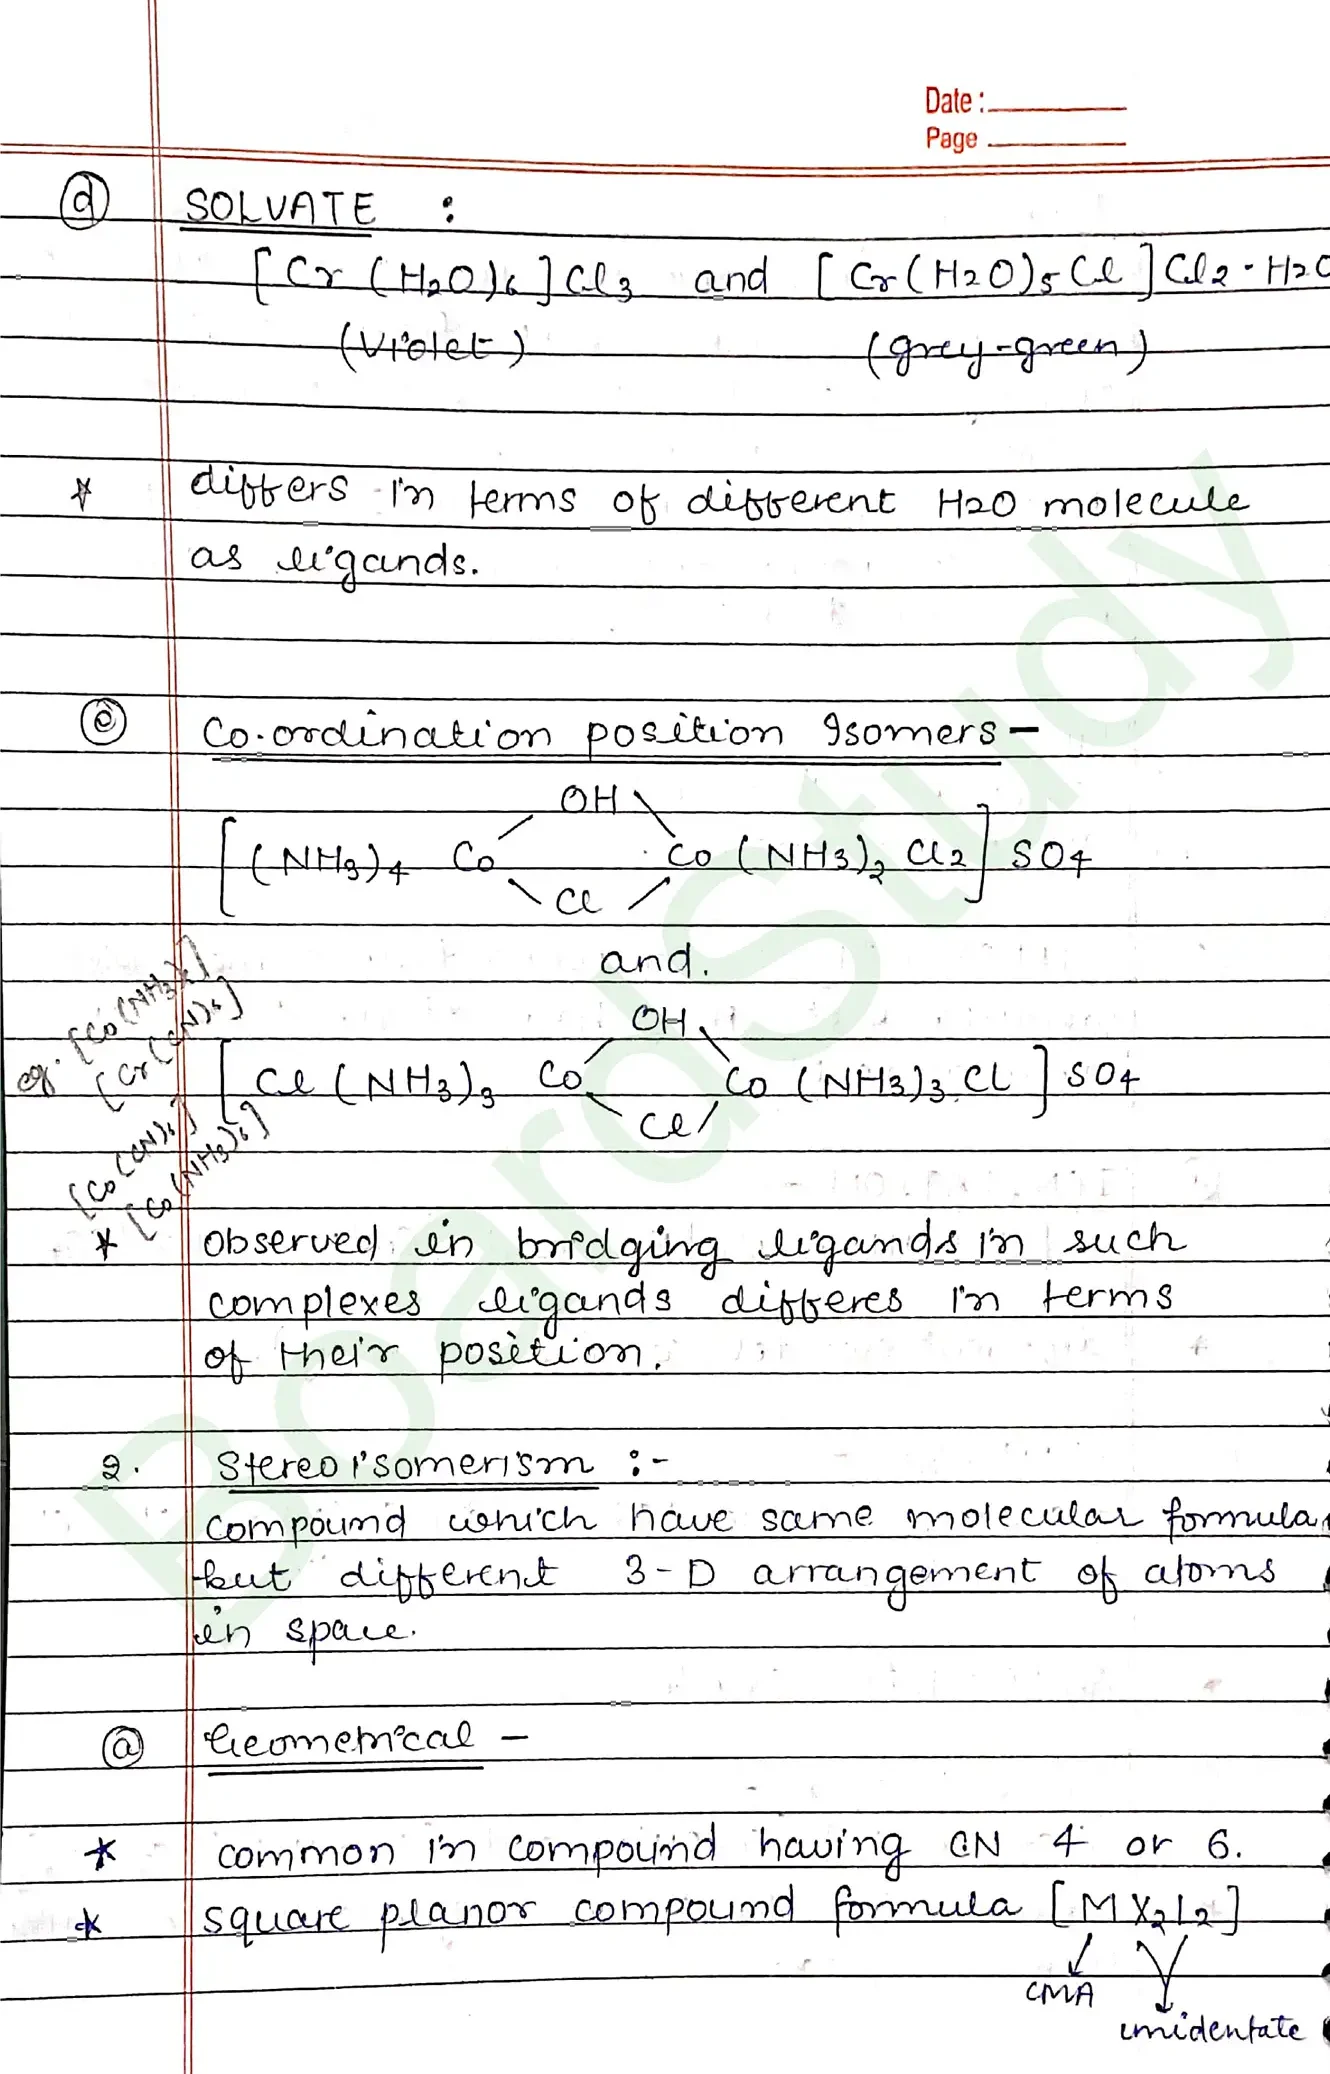 Date :
Page
d SOLVATE :
[Cr(H2O)6]Cl3 and [Cr(H2O)5Cl]Cl2·H2O
(violet) (grey-green)
* differs in terms of different H2O molecule
as ligands.
e Co-ordination position Isomers -
OH
[(NH3)4 Co Co (NH3)2 Cl2] SO4
Cl
and.
OH
[Cl (NH3)3 Co Co (NH3)3 Cl] SO4
Cl
eg. [Co(NH3)6]
[Cr(CN)6]
[Co(CN)6]
[Co(NH3)6]
* observed in bridging ligands in such
complexes ligands differes in terms
of their position.
2. Stereoisomerism :-
compound which have same molecular formula
but different 3-D arrangement of atoms
in space.
a Geometrical -
* common in compound having CN 4 or 6.
* square planor compound formula [MX2L2]
CMA
unidentate
BoardStudy